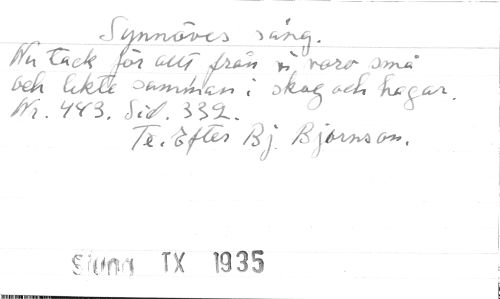 Synnöves sång.
Nu tack för allt från vi voro små
och lekte samman i skog och hagar.
Nr. 443. Sid. 332.
Te. Efter Bj. Björnson.
Sjung TX 1935